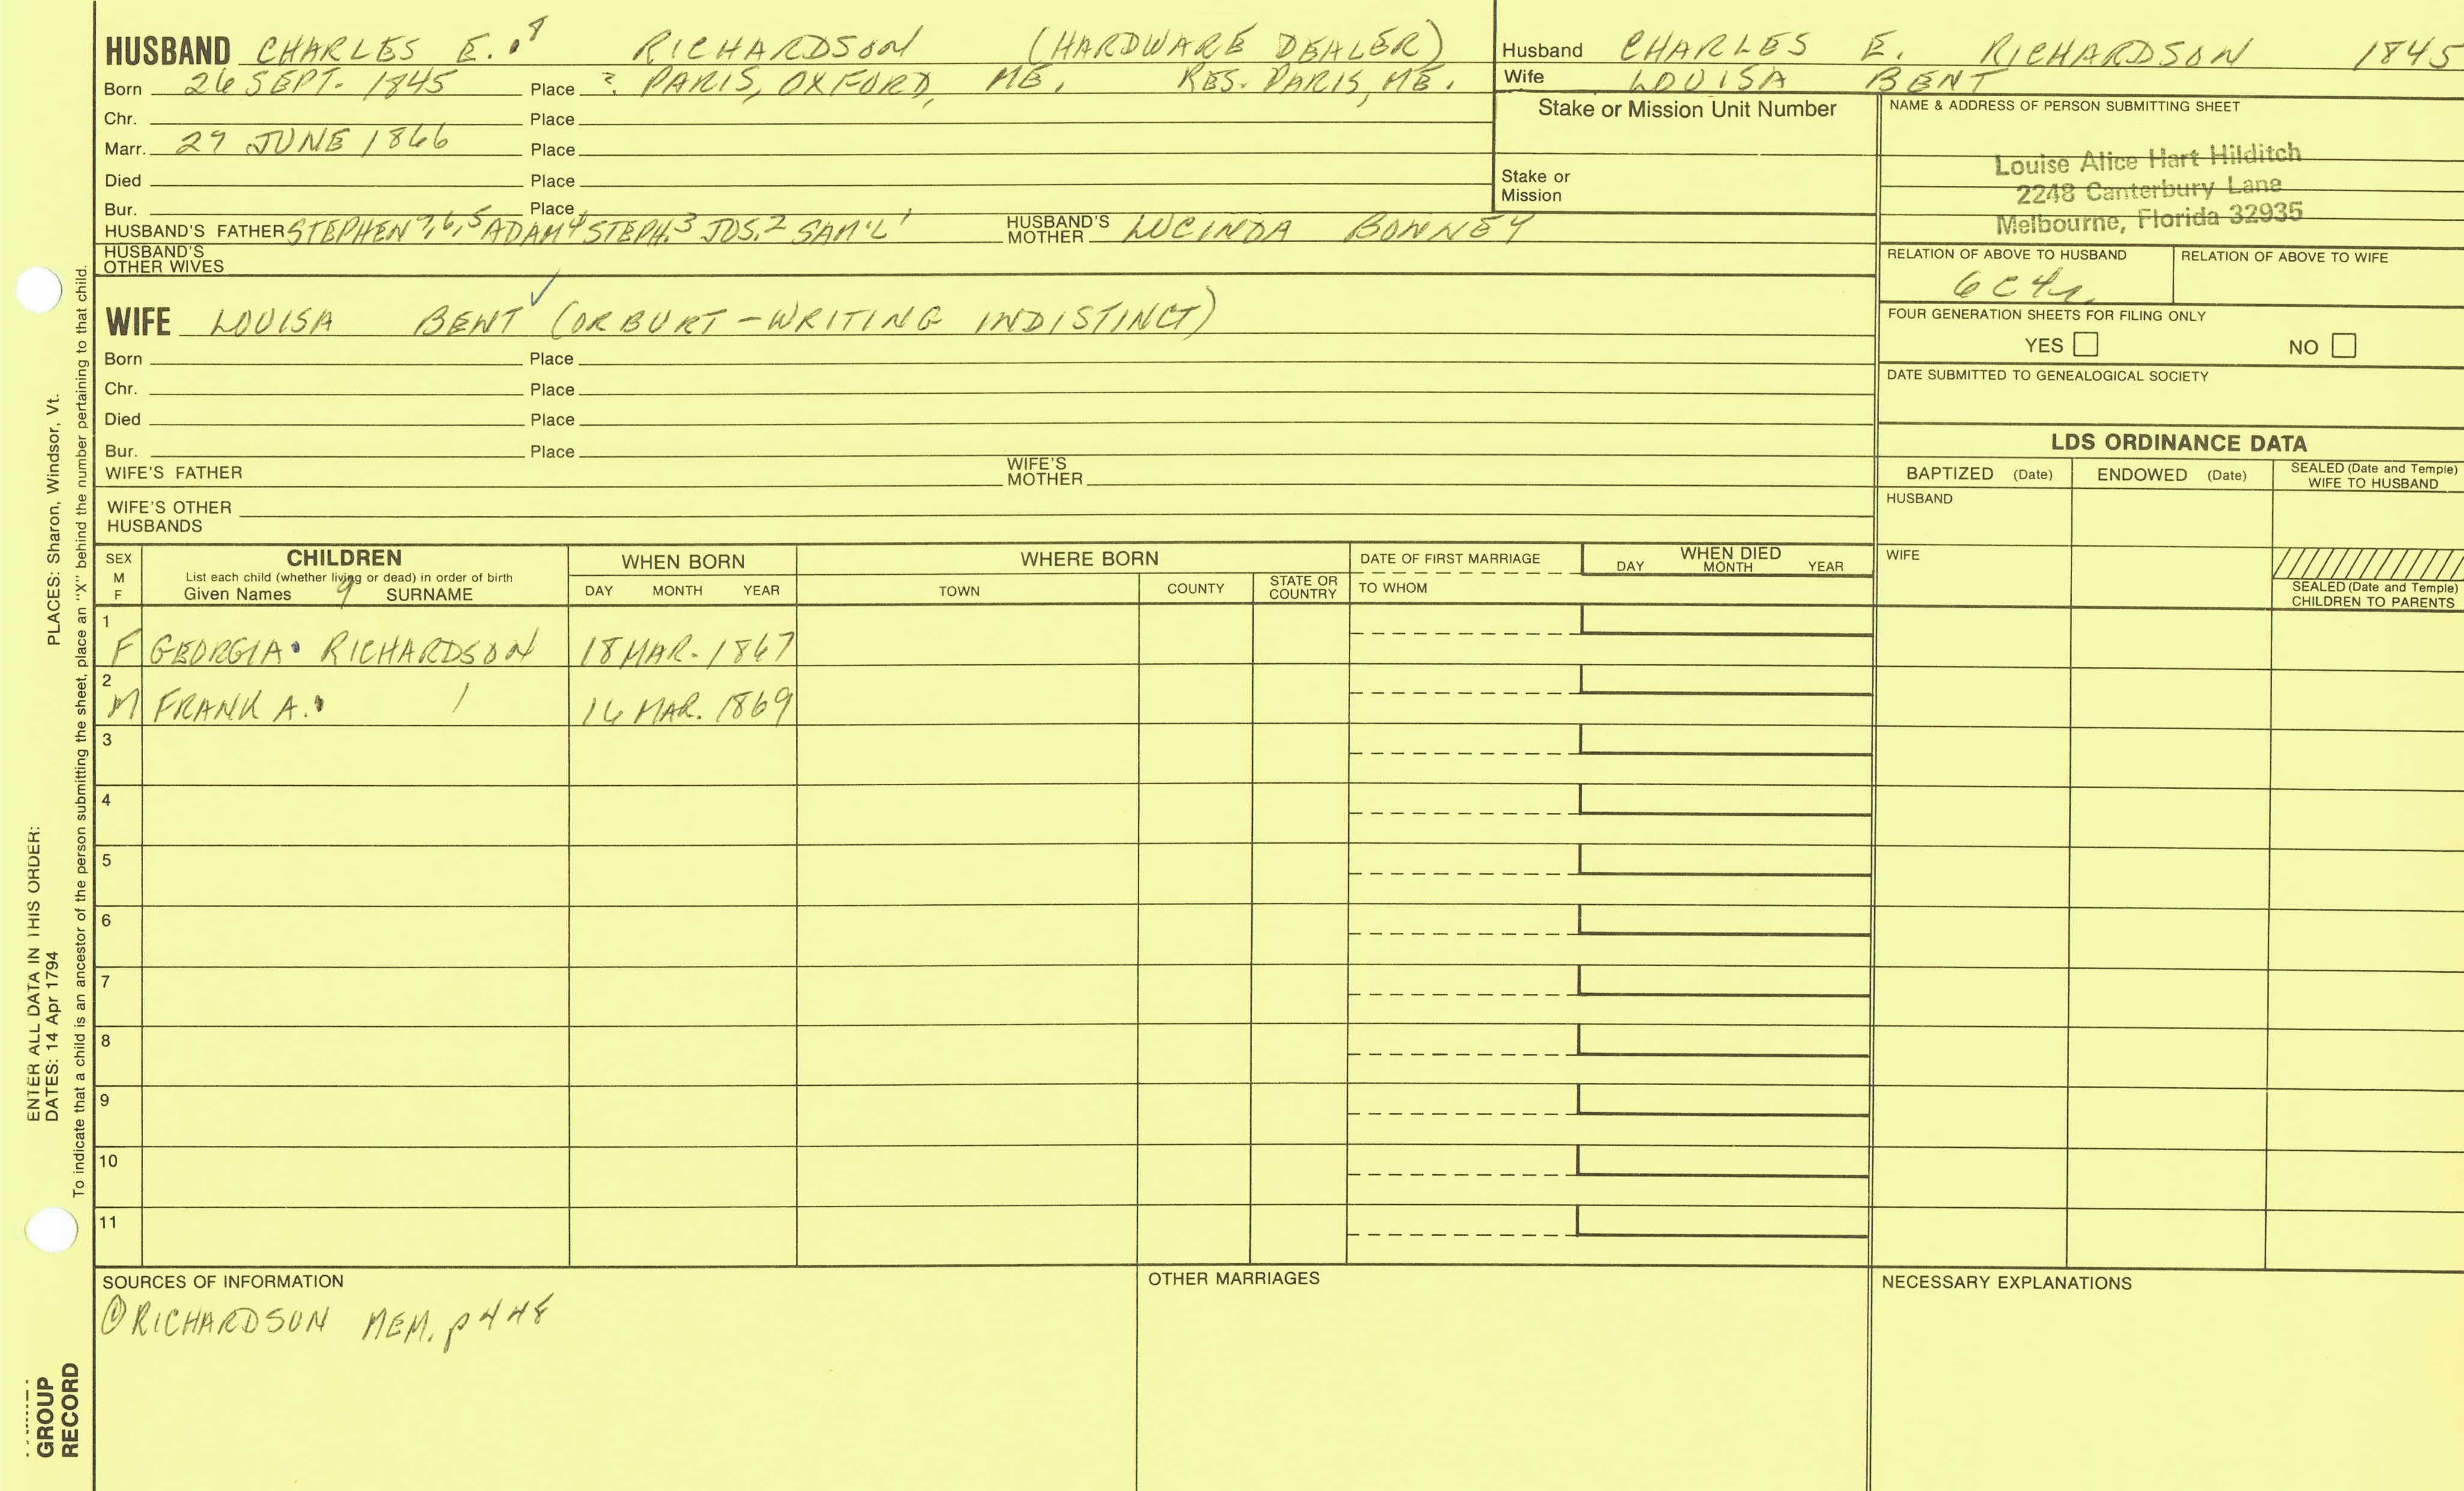 HUSBAND CHARLES E.8 RICHARDSON (HARDWARE DEALER)
Born 26 SEPT. 1845 Place ? PARIS, OXFORD, ME. RES. PARIS, ME.
Chr. Place
Marr. 29 JUNE 1866 Place
Died Place
Bur. Place
HUSBAND'S FATHER STEPHEN 7,6,5 ADAM 4 STEPH. 3 JOS. 2 SAM'L 1 HUSBAND'S MOTHER LUCINDA BONNEY
HUSBAND'S OTHER WIVES
WIFE LOUISA BENT (OR BURT - WRITING INDISTINCT)
Born Place
Chr. Place
Died Place
Bur. Place
WIFE'S FATHER WIFE'S MOTHER
WIFE'S OTHER HUSBANDS
Husband CHARLES E. RICHARDSON 1845
Wife LOUISA BENT
Stake or Mission Unit Number
Stake or Mission
NAME & ADDRESS OF PERSON SUBMITTING SHEET
Louise Alice Hart Hilditch
2248 Canterbury Lane
Melbourne, Florida 32935
RELATION OF ABOVE TO HUSBAND RELATION OF ABOVE TO WIFE
6C4r
FOUR GENERATION SHEETS FOR FILING ONLY
YES NO
DATE SUBMITTED TO GENEALOGICAL SOCIETY
LDS ORDINANCE DATA
BAPTIZED (Date) ENDOWED (Date) SEALED (Date and Temple) WIFE TO HUSBAND
HUSBAND
WIFE
SEALED (Date and Temple) CHILDREN TO PARENTS
SEX M F CHILDREN WHEN BORN WHERE BORN DATE OF FIRST MARRIAGE WHEN DIED
List each child (whether living or dead) in order of birth DAY MONTH YEAR
Given Names 9 SURNAME DAY MONTH YEAR TOWN COUNTY STATE OR COUNTRY TO WHOM
1 F GEORGIA RICHARDSON 18 MAR. 1867
2 M FRANK A. 16 MAR. 1869
3
4
5
6
7
8
9
10
11
SOURCES OF INFORMATION OTHER MARRIAGES NECESSARY EXPLANATIONS
① RICHARDSON MEM. p 448
PLACES: Sharon, Windsor, Vt.
ENTER ALL DATA IN THIS ORDER:
DATES: 14 Apr 1794
To indicate that a child is an ancestor of the person submitting the sheet, place an "X" behind the number pertaining to that child.
GROUP
RECORD